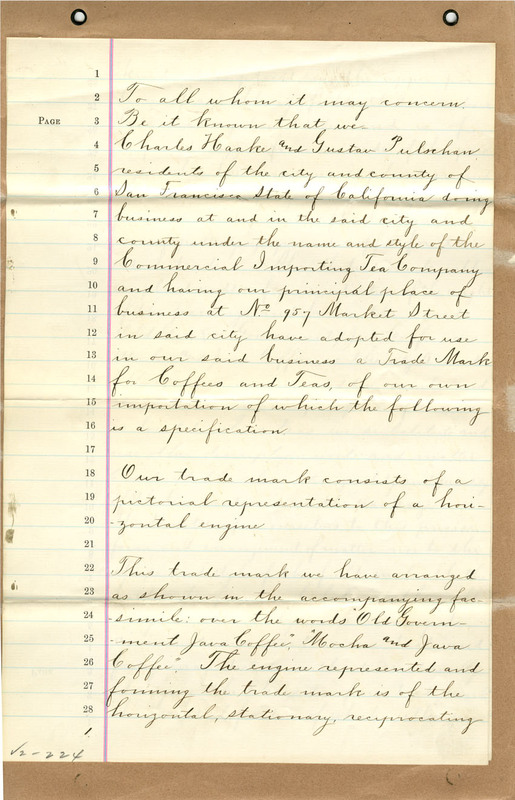 1
2 To all whom it may concern.
PAGE 3 Be it known that we
4 Charles Haake and Gustav Pulschan
5 residents of the city and county of
6 San Francisco State of California doing
7 business at and in the said city and
8 county under the name and style of the
9 Commercial Importing Tea Company
10 and having our principal place of
11 business at No 957 Market Street
12 in said city have adopted for use
13 in our said business a Trade Mark
14 for Coffees and Teas, of our own
15 importation of which the following
16 is a specification
17
18 Our trade mark consists of a
19 pictorial representation of a hori-
20 -zontal engine
21
22 This trade mark we have arranged
23 as shown in the accompanying fac-
24 -simile: over the words "Old Govern-
25 -ment Java Coffee", "Mocha and Java
26 Coffee". The engine represented and
27 forming the trade mark is of the
28 horizontal, stationary, reciprocating
1.
V2-224